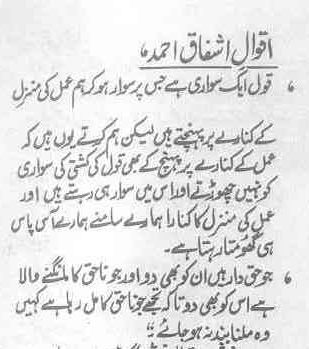 اقوال اشفاق احمد،
، قول ایک سواری ہے جس پر سوار ہو کر ہم عمل کی منزل
کے کنارے پر پہنچتے ہیں لیکن ہم کرتے یوں ہیں کہ
عمل کے کنارے پر پہنچ کے بھی قول کی کشتی کی سواری
کو نہیں چھوڑتے اور اس میں سوار ہی رہتے ہیں اور
عمل کی منزل کا کنارا ہمارے سامنے ہمارے آس پاس
ہی گھومتا رہتا ہے۔
، جو حق دار ہیں ان کو بھی دو اور جو ناحق کا مانگنے والا
ہے اس کو بھی دو تا کہ تجھے جو ناحق کا مل رہا ہے کہیں
وہ ملنا بند نہ ہو جائے